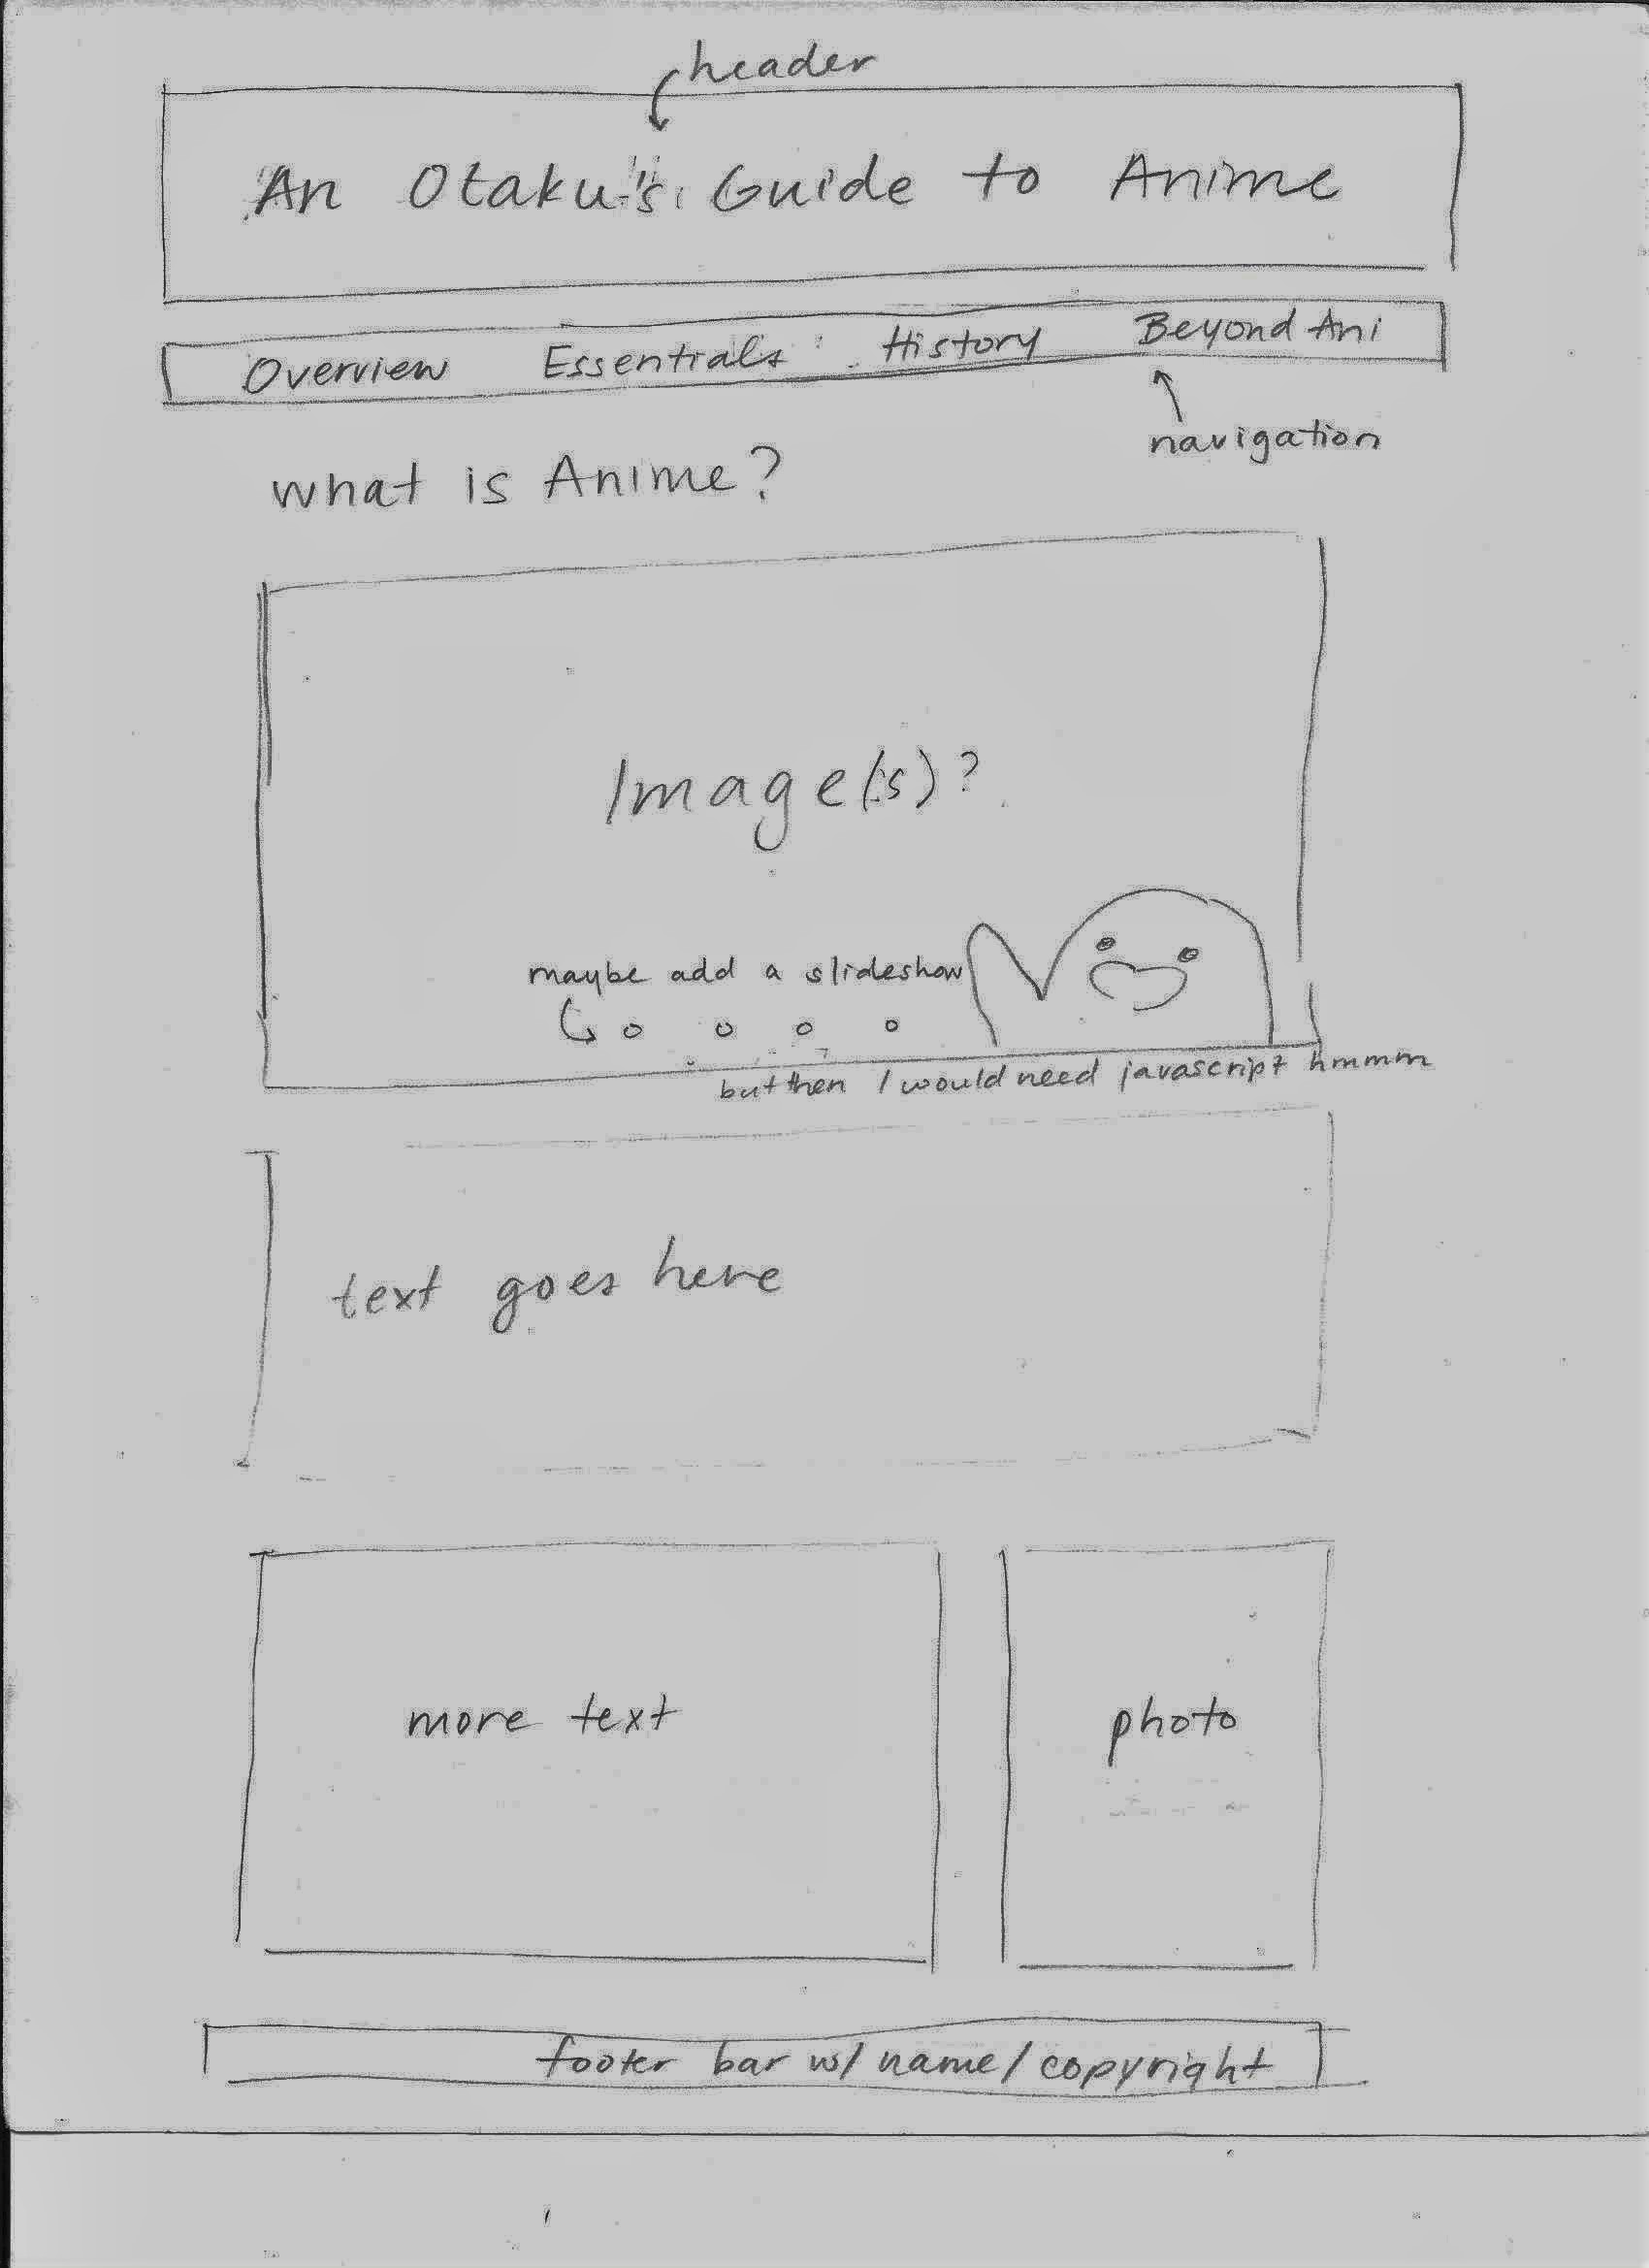 header
An Otaku's Guide to Anime
Overview Essentials History Beyond Ani
navigation
What is Anime?
Image(s)?
maybe add a slideshow
but then I would need javascript hmmm
text goes here
more text
photo
footer bar w/ name/copyright